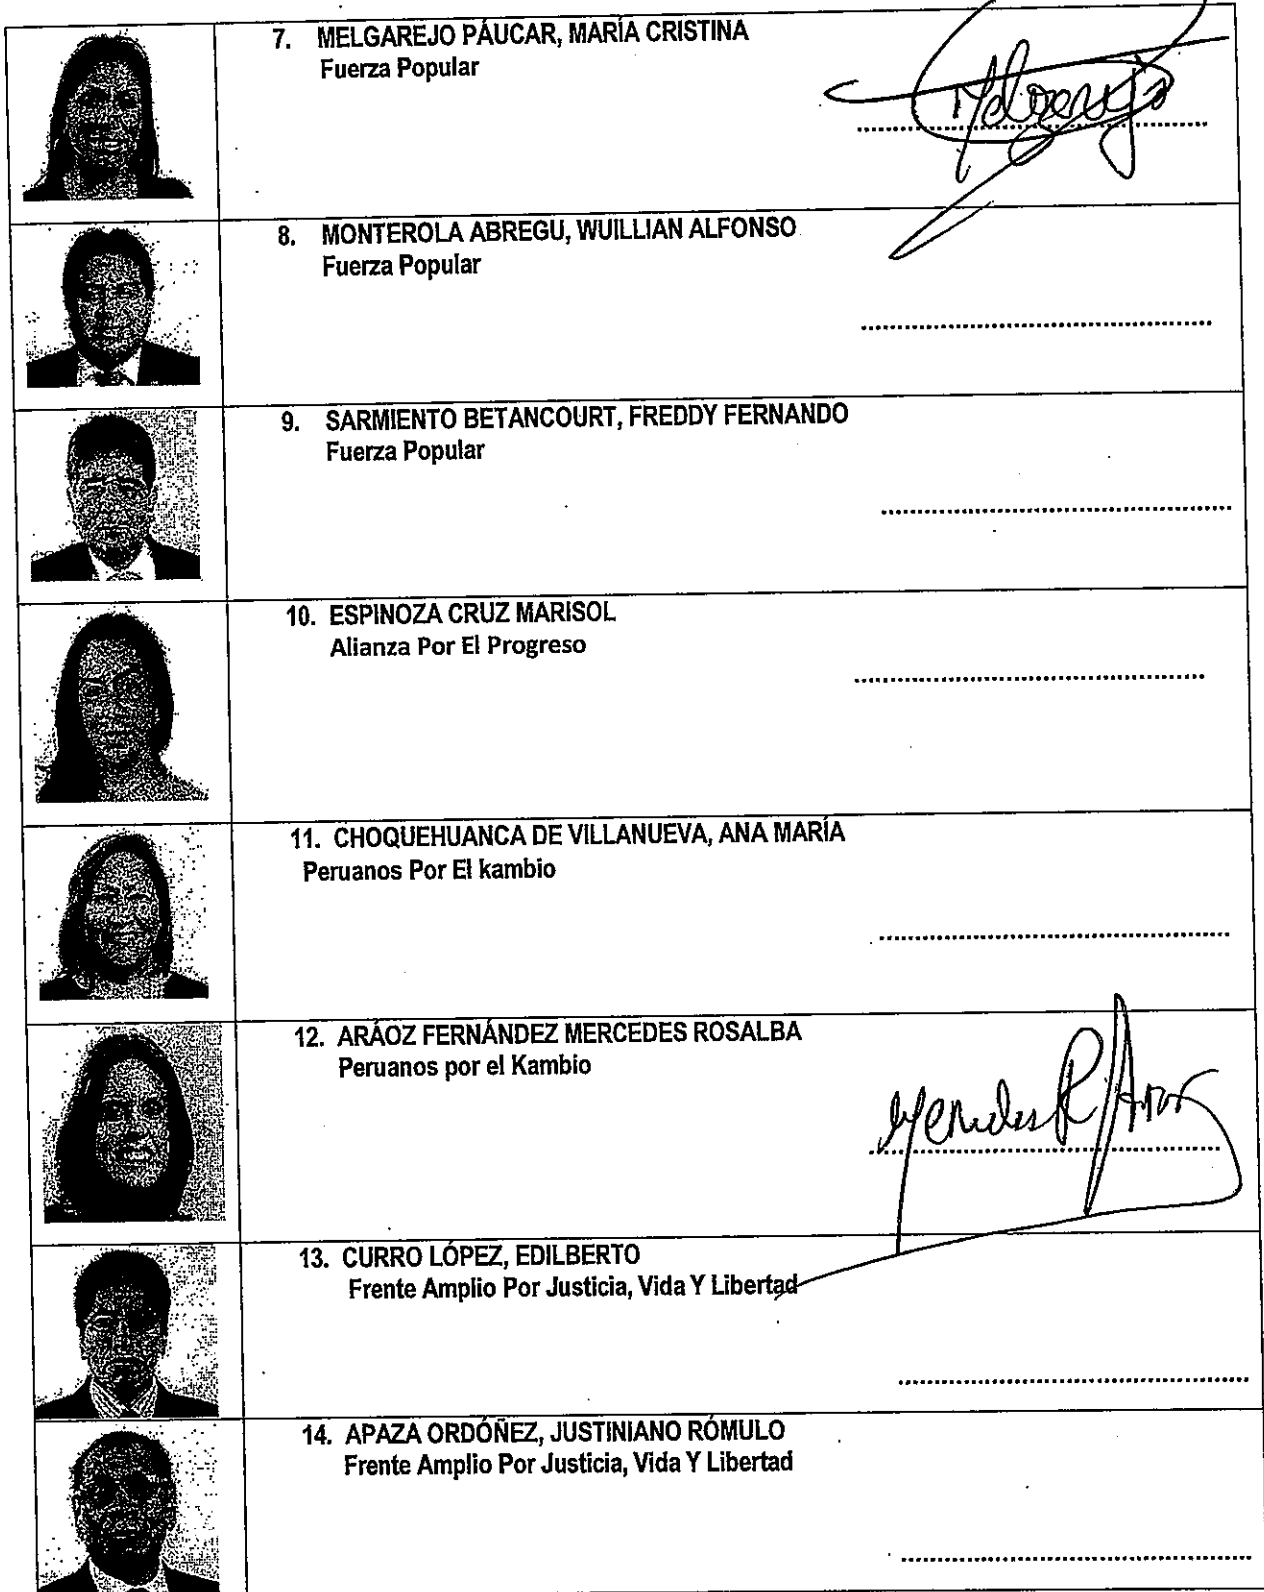 7. MELGAREJO PÁUCAR, MARÍA CRISTINA
Fuerza Popular
Melgarejo
8. MONTEROLA ABREGU, WUILLIAN ALFONSO
Fuerza Popular
9. SARMIENTO BETANCOURT, FREDDY FERNANDO
Fuerza Popular
10. ESPINOZA CRUZ MARISOL
Alianza Por El Progreso
11. CHOQUEHUANCA DE VILLANUEVA, ANA MARÍA
Peruanos Por El kambio
12. ARÁOZ FERNÁNDEZ MERCEDES ROSALBA
Peruanos por el Kambio
Mercedes R Araoz
13. CURRO LÓPEZ, EDILBERTO
Frente Amplio Por Justicia, Vida Y Libertad
14. APAZA ORDÓÑEZ, JUSTINIANO RÓMULO
Frente Amplio Por Justicia, Vida Y Libertad